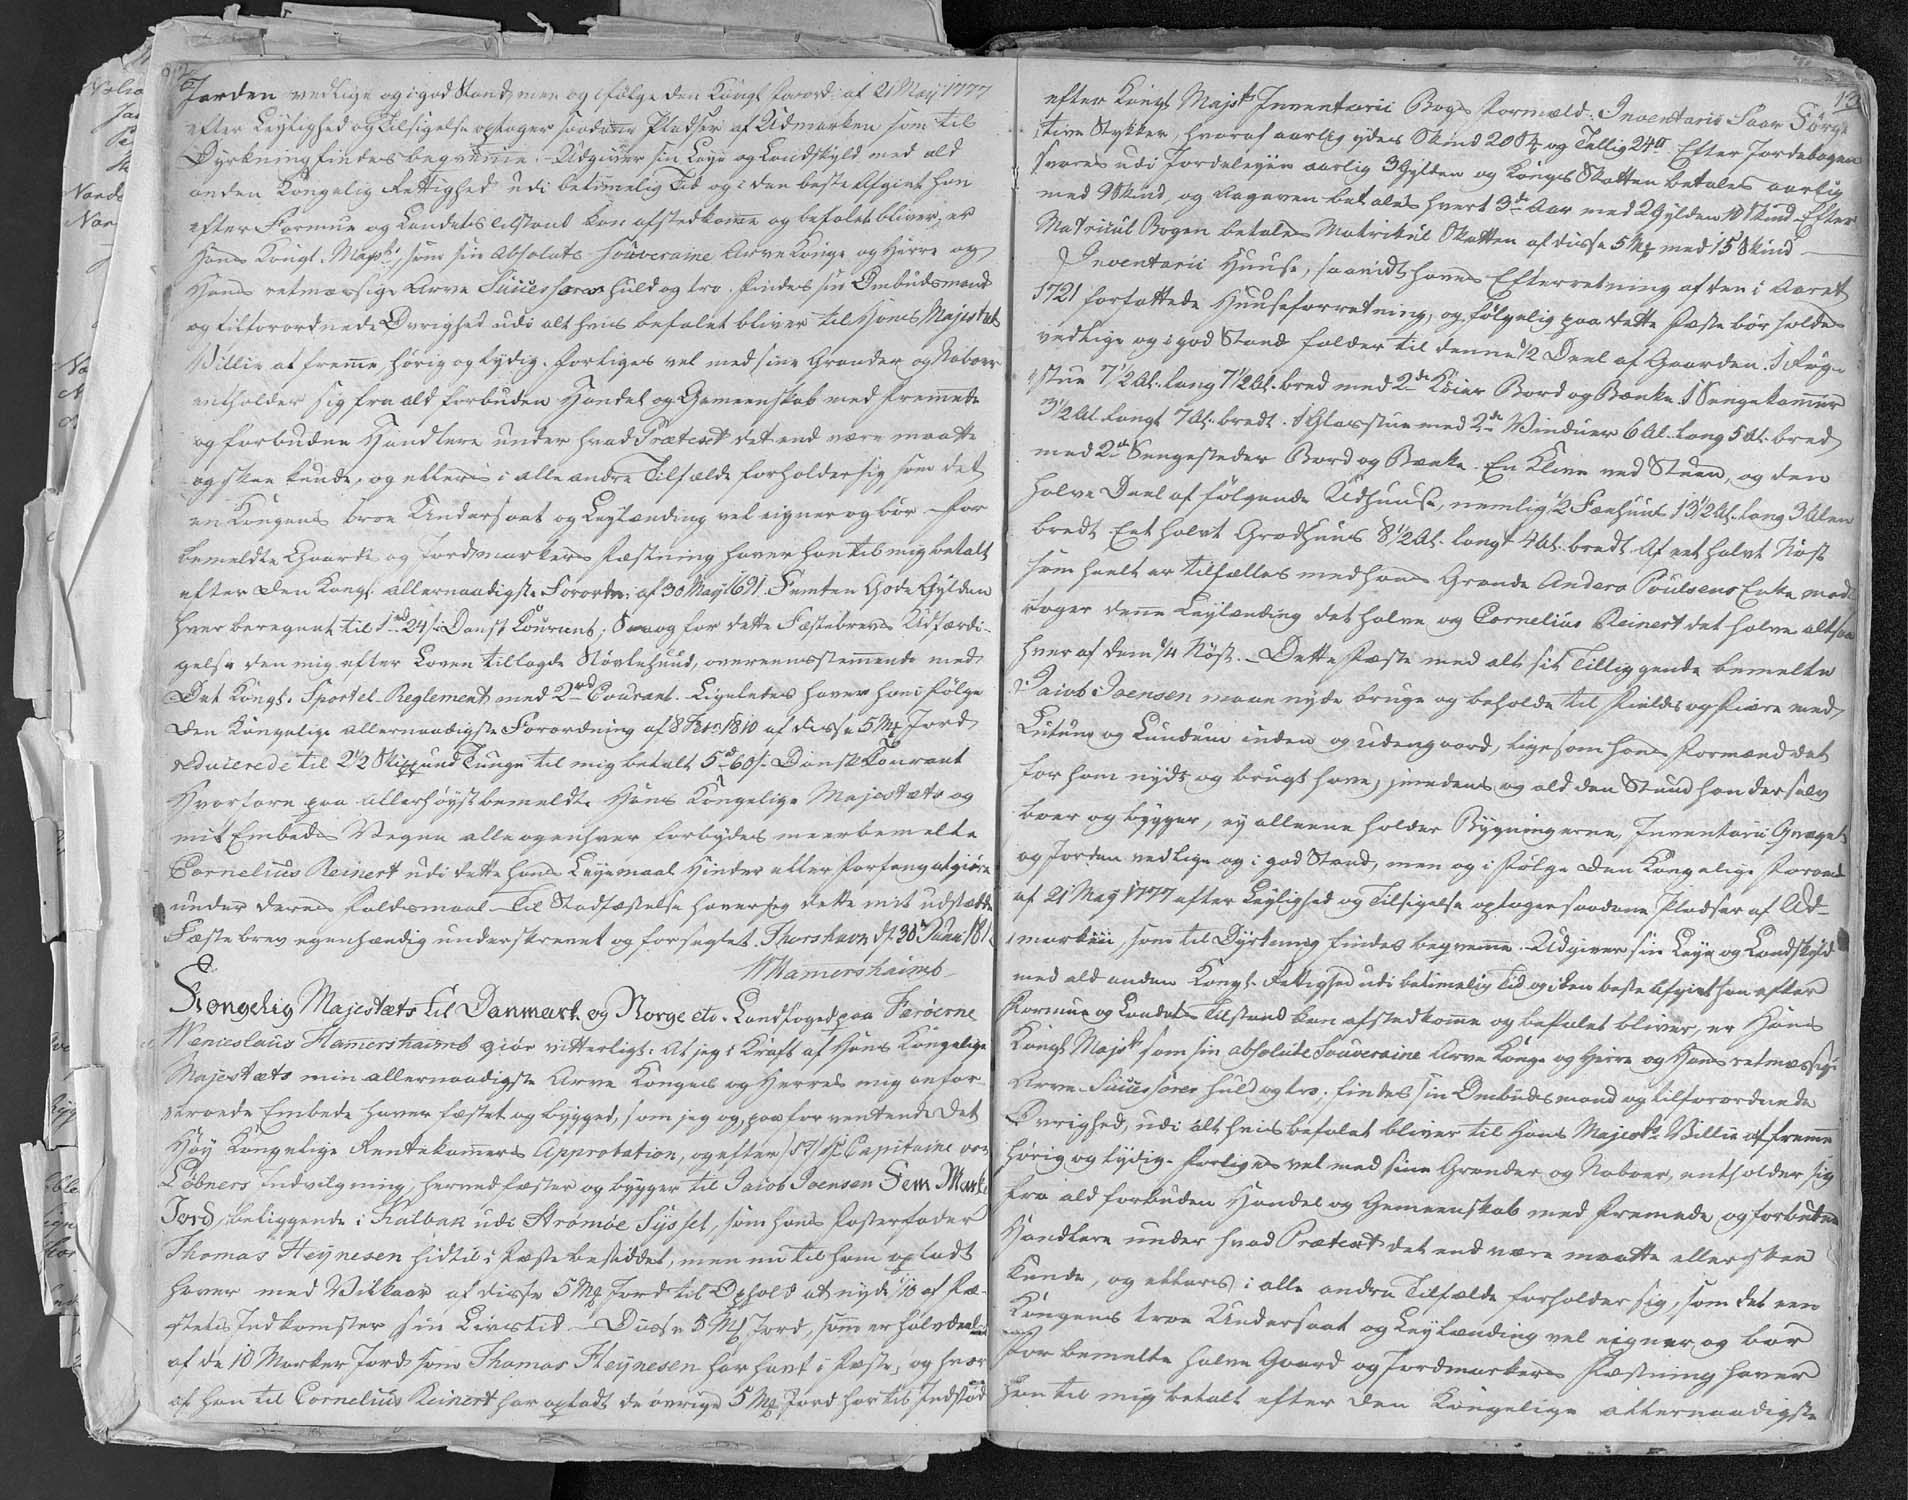 Jorden vedlige og i god Stand, men og i følge den Kongl. Forord. af 21 May 1777
efter Leylighed og Tilsigelse optager saadane Pladser af Udmarken som til
Dyrkning findes beqveme. Udgiver sin Leye og Landskyld med ald
anden Kongelig Rettighed udi betimelig Tid og i den beste Afgivt han
efter Formue og Landets Tilstand kan afstedkome og befalet bliver, er
Hans Kongl. Majsts, som sin absolute Souveraine Arve Konge og Herre og
Hans retmæssige Arve Successorer huld og tro. findes sin Ombudsmand
og tilforordnede Øvrighed udi alt hvis befalet bliver til Hans Majestæts
Villie at freme hørig og lydig. forliges vel med sine Grander og Naboer
entholder sig fra ald forbuden Handel og Gemeenskab med fremede
og forbudne Handlere under hvad Prætext det end være maatte
og skee kunde, og ellers i alle andre Tilfælde forholder sig som det
en Kongens troe Undersaat og Leylænding vel eigner og bør. For
bemeldte Gaards og Jordmarkers Fæstning haver han til mig betalt
efter den Kongl. allernaadigste Forordn: af 30 May 1691. Femten Gode Gylden
hver beregnet til 1rd 24 s. Dansk Courant; Saa og for dette Fæstebrevs Udfærdi-
gelse den mig efter Loven tillagde Støvlehuud, overeensstemmende med
Det Kongl. Sportel-Reglement med 2rd Courant. Ligeledes haver han i følge
den Kongelige allernaadigste Forordning af 8 Febr. 1810 af disse 5 Mk Jord
reducerede til 2 1/2 Skippund Tunge til mig betalt 5rd 60 s. Dansk Courant
Hvorfore paa Allerhøystbemeldte Hans Kongelige Majestæts og
mit Embeds Vegne alle og enhver forbydes meerbemelte
Cornelius Reinert udi dette hans Leyemaal Hinder eller Forfang at giøre
under deres Faldsmaal. Til Stadfæstelse haver jeg dette mit udstædde
Fæstebrev egenhændig underskrevet og forseglet. Thorshavn d. 30 Juni 181
WHamershaimb
Kongelig Majestæts til Danmark og Norge etc. Landfoged paa Færøerne
Wenceslaus Hamershaimb giør vitterligt: At jeg i Kraft af Hans Kongelige
Majestæts min allernaadigste Arve Konges og Herres mig anfor-
troede Embede haver fæstet og bygget, som jeg og, paa forventende det
Høy Kongelige Rentekamers Approbation, og efter Capitaine von
Löbners Indvilgning, herved fæster og bygger til Jacob Joensen Fem Marker
Jord, beliggende i Kalbak udi Strømøe Syssel, som hans Fosterfader
Thomas Heynesen hidtil i Fæste besiddet, men nu til ham opladt
haver med Vilkaar af disse 5 Mk Jord til Ophold at nyde 1/10 af Fæ-
stets Indkomster sin Livstid. Disse 5 Mk Jord, som er halvdeelen
af de 10 Marker Jord som Thomas Heynesen har havt i Fæste, og hvor
af han til Cornelius Reinert har opladt de øvrige 5 Mk Jord har til Indstød
13
efter Kongl. Majsts Inventarii Bogs Formæld: Inventarii Faar Fyrge
tive Stykker, hvoraf aarlig ydes Skind 20 St. og Tællig 24 ℔. Efter Jordebogen
svares udi Jordeleyen aarlig 3 Gylden og Kongs Skatten betales aarlig
med 9 Skind, og Aagaven betales hvert 3de Aar med 2 Gylden 10 Skind. Efter
Matricul Bogen betales Matrikul Skatten af disse 5 Mk med 15 Skind
Inventarii Huuse, saavidt haves Efterretning af den i Aaret
1721 forfattede Huuseforretning, og følgelig paa dette Fæste bør holdes
vedlige og i god Stand falder til denne 1/2 Deel af Gaarden. 1 Røg-
stue 7 1/2 Al. lang 7 1/2 Al. bred med 2de Køier Bord og Bænke. 1 Sengekammer
3 1/2 Al. langt 7 Al. bredt. 1 Glasstue med 2de Vinduer 6 Al. lang 5 Al. bred
med 2de Sengesteder Bord og Bænke. En Kleve ved Stuen, og den
halve Deel af følgende Udhuuse, nemlig 1/2 Fæehuus 13 1/2 Al. lang 3 Alen
bredt. Eet halvt Groedhuus 8 1/2 Al. langt 4 Al. bredt. Af eet halvt Nøst
som heelt er tilfælles med hans Grande Anders Poulsens Enke mod-
tager dene Leylænding det halve og Cornelius Reinert det halve altsaa
hver af dem 1/4 Nøst. Dette Fæste med alt sit Tilliggende bemelte
Jacob Joensen maae nyde bruge og beholde til Fields og Fiære med
Lutum og Lundum inden og udengaard, ligesom hans Formænd det
for ham nydt og brugt have, imedens og ald den Stund han der selv
boer og bygger, ey alleene holder Bygningerne, Inventarii Qvæget
og Jorden vedlige og i god Stand, men og i følge den Kongelige Forord.
af 21 May 1777 efter Leylighed og Tilsigelse optager saadane Pladser af Ud-
marken, som til Dyrkning findes beqveme. Udgiver sin Leye og Landskyld
med ald anden Kongl. Rettighed udi betimelig Tid og i den beste Afgivt han efter
Formue og Landets Tilstand kan afstedkome og befalet bliver, er Hans
Kongl. Majst. som sin absolute Souveraine Arve Konge og Herre og Hans retmæssige
Arve Successorer huld og tro; findes sin Ombudsmand og tilforordnede
Øvrighed, udi alt hvis befalet bliver til Hans Majests Villie at freme
hørig og lydig. forliges vel med sine Grander og Naboer, entholder sig
fra ald forbuden Handel og Gemeenskab med fremede og forbudne
Handlere under hvad Prætext det end være maatte eller skee
kunde, og ellers i alle andre Tilfælde forholder sig, som det een
Kongens troe Undersaat og Leylænding vel eigner og bør
For bemelte halve Gaard og Jordmarkers Fæstning haver
han til mig betalt efter den Kongelige allernaadigste